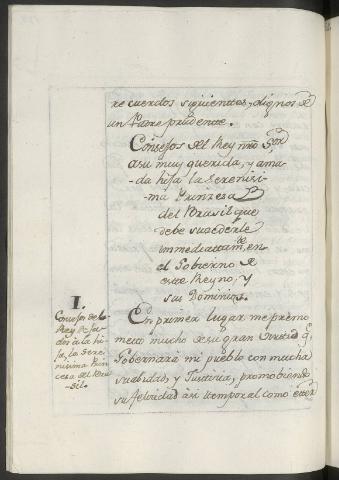 recuerdos siguientes, dignos de
un Padre prudente.
Consejos del Rey nro Sor
a su muy querida, y ama-
-da hija la Serenisi-
-ma Princesa D
del Brasil que
debe sucederle
immediattamte en
el Gobierno de
este Reyno, y
sus Dominios.
I.
Consejos de el
Rey
dos a la hi-
ja, la Sere-
nisima Prin-
cesa del Bra-
-sil.
En primer lugar me prome
metto mucho de su gran Virtud q
Gobernará mi pueblo con mucha
suabidad, y Justicia, promobiendo
su felicidad asi temporal como eter